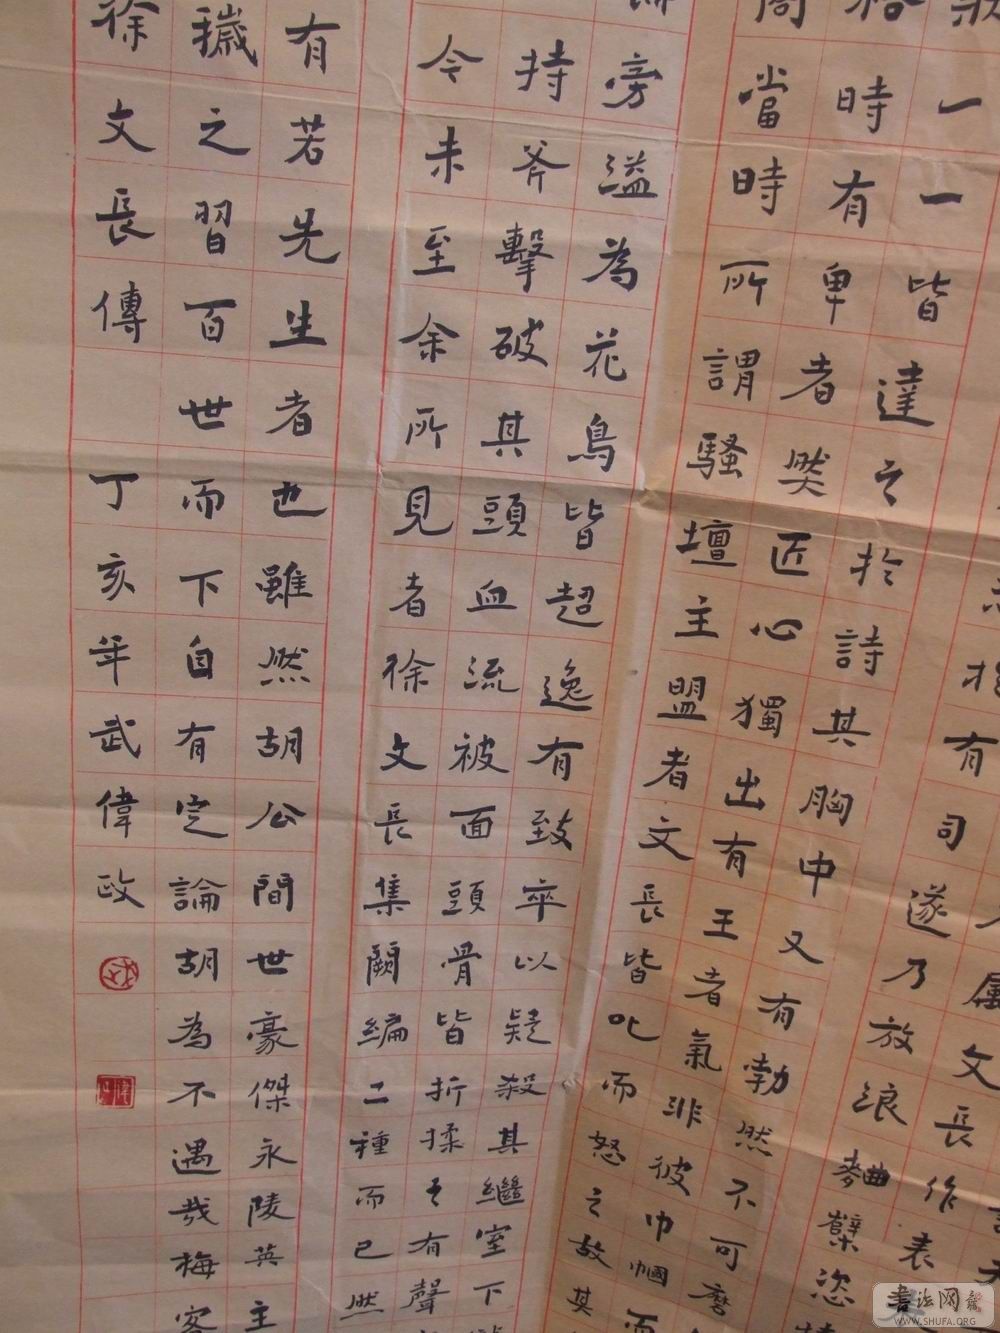 屬文長作表
志於有司遂乃放浪麴櫱恣
狀一一皆達之於詩其胸中又有勃然不可磨
格時有卑者然匠心獨出有王者氣非彼巾幗而
當時所謂騷壇主盟者文長皆叱而怒之故其
旁溢為花鳥皆超逸有致卒以疑殺其繼室下
持斧擊破其頭血流被面頭骨皆折揉之有聲
今未至余所見者徐文長集闕編二種而已然
有若先生者也雖然胡公間世豪傑永陵英主
穢之習百世而下自有定論胡為不遇哉梅客
徐文長傳 丁亥年武偉政
書法网
WWW.SHUFA.ORG